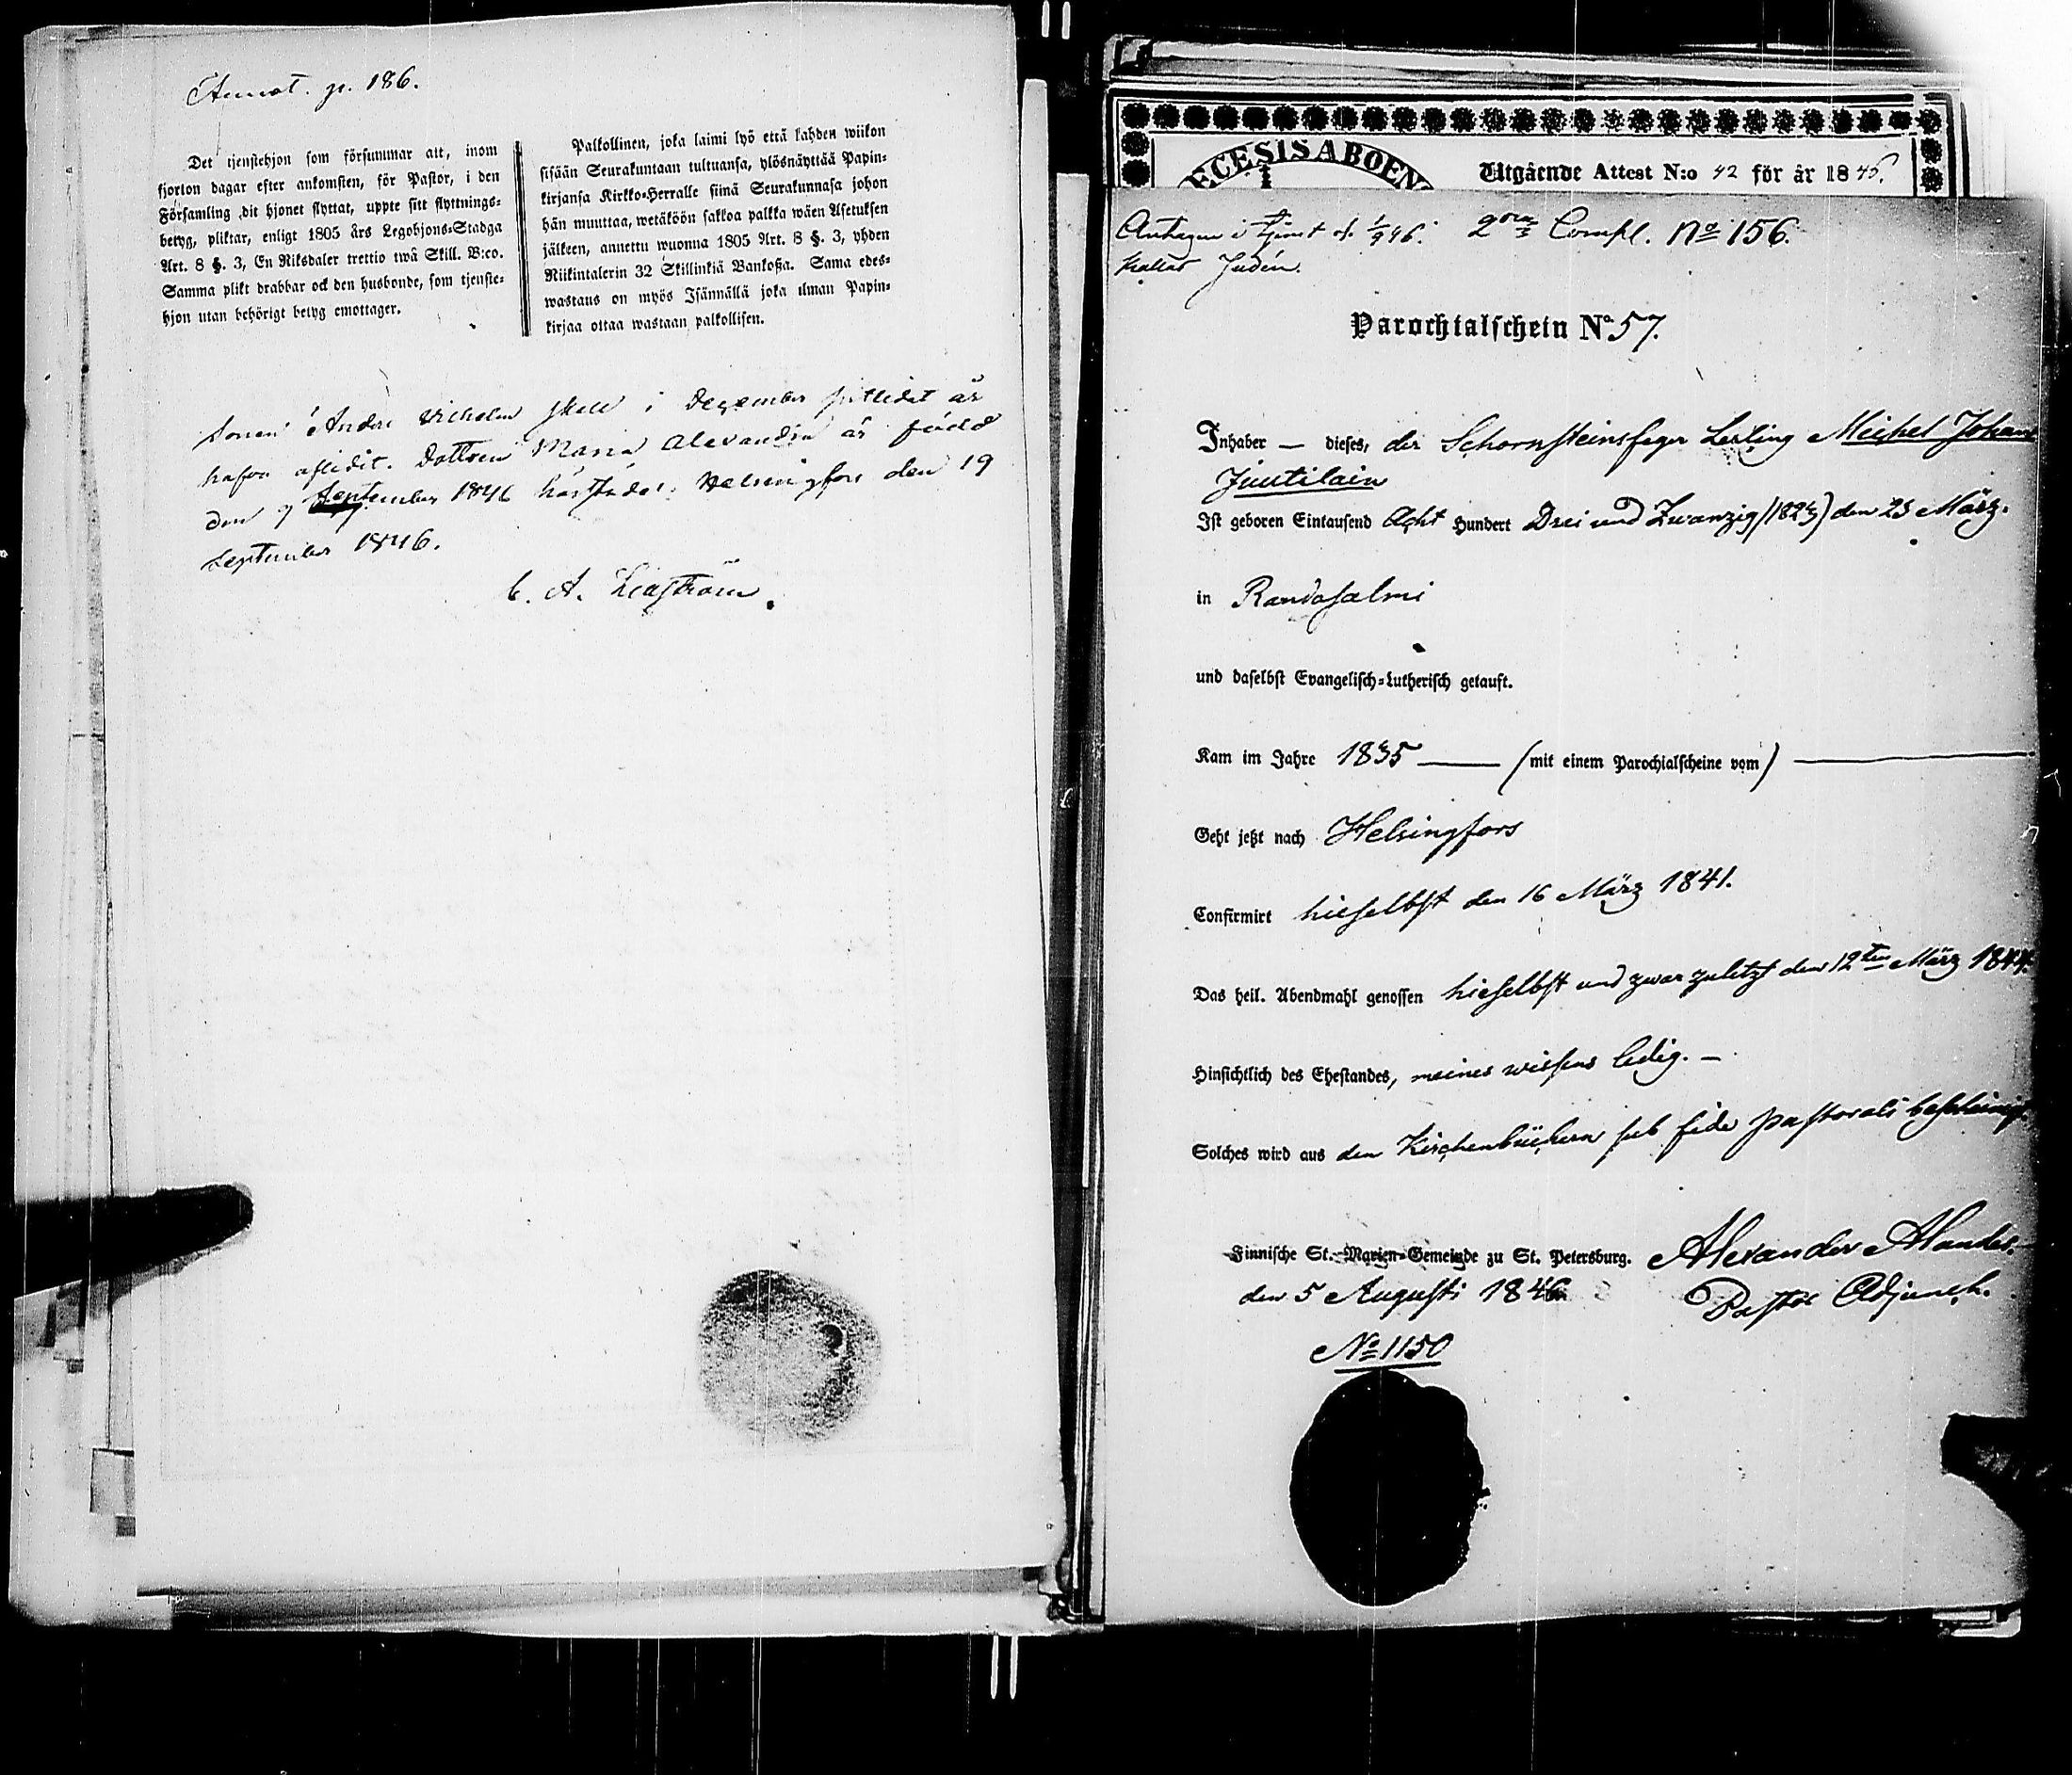 Annot. p. 186.
Det tjenstehjon som försummar att, inom
fjorton dagar efter ankomsten, för Pastor, i den
Församling dit hjonet flyttat, uppte sitt flyttnings-
betyg, pliktar, enligt 1805 års Legohjons-Stadga
Art. 8 §. 3, En Riksdaler trettio twå Skill. B:co.
Samma plikt drabbar ock den husbonde, som tjenste-
hjon utan behörigt betyg emottager.
Palkollinen, joka laimi lyö että kahden wiikon
sisään Seurakuntaan tultuansa, ylösnäyttää Papin-
kirjansa Kirkko-Herralle siinä Seurakunnasa johon
hän muuttaa, wetäköön sakkoa palkka wäen Asetuksen
jälkeen, annettu wuonna 1805 Art. 8 §. 3, yhden
Riikintalerin 32 Skillinkiä Bankoßa. Sama edes-
wastaus on myös Isännällä joka ilman Papin-
kirjaa ottaa wastaan palkollisen.
Sonen Andrs Vilhelm skall i December sistledet år
hafva aflidit. Dottren Maria Alexandra är född
den 9 September 1846 härstädes. Helsingfors den 19
September 1846.
C. A.
ECESIS ABOEN
Utgående Attest N:o 42 för år 1846.
Antagen i tjenst d. 1/9 46. 2 Compl. No 156.
kallas Judén.
Parochialschein No 57.
Inhaber — dieses, der Schornsteinsfeger Lerling Michel Johan
Juutilain
Ist geboren Eintausend Acht Hundert Drei und Zwanzig (1823) den 23 März.
in Randasalmi
und daselbst Evangelisch-Lutherisch getauft.
Kam im Jahre 1835 — (mit einem Parochialscheine vom) —
Geht jetzt nach Helsingfors
Confirmirt hieselbst den 16 März 1841.
Das heil. Abendmahl genossen hieselbst und zwar zuletzt den 12ten März 1844.
Hinsichtlich des Ehestandes, meines wissens ledig. —
Solches wird aus den Kirchenbüchern sub fide pastorali bescheinigt.
Finnische St.-Marien-Gemeinde zu St. Petersburg. Alexander
den 5 Augusti 1846. Pastor Adjunct.
No 1150